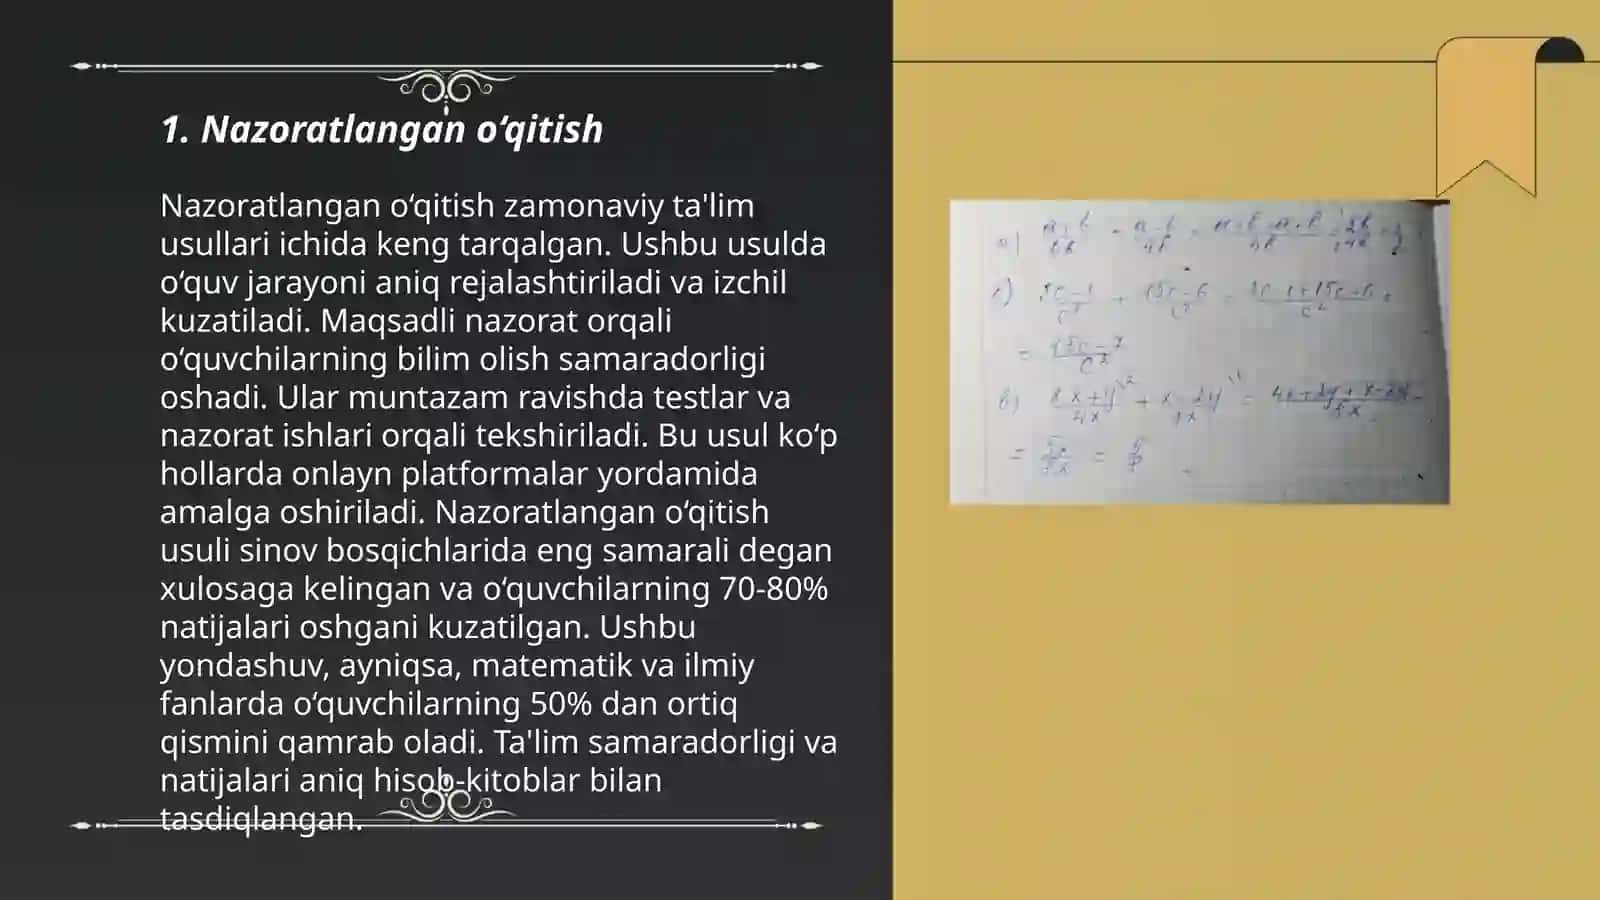 1. Nazoratlangan oʻqitish
Nazoratlangan oʻqitish zamonaviy ta'lim
usullari ichida keng tarqalgan. Ushbu usulda
oʻquv jarayoni aniq rejalashtiriladi va izchil
kuzatiladi. Maqsadli nazorat orqali
oʻquvchilarning bilim olish samaradorligi
oshadi. Ular muntazam ravishda testlar va
nazorat ishlari orqali tekshiriladi. Bu usul koʻp
hollarda onlayn platformalar yordamida
amalga oshiriladi. Nazoratlangan oʻqitish
usuli sinov bosqichlarida eng samarali degan
xulosaga kelingan va oʻquvchilarning 70-80%
natijalari oshgani kuzatilgan. Ushbu
yondashuv, ayniqsa, matematik va ilmiy
fanlarda oʻquvchilarning 50% dan ortiq
qismini qamrab oladi. Ta'lim samaradorligi va
natijalari aniq hisob-kitoblar bilan
tasdiqlangan.